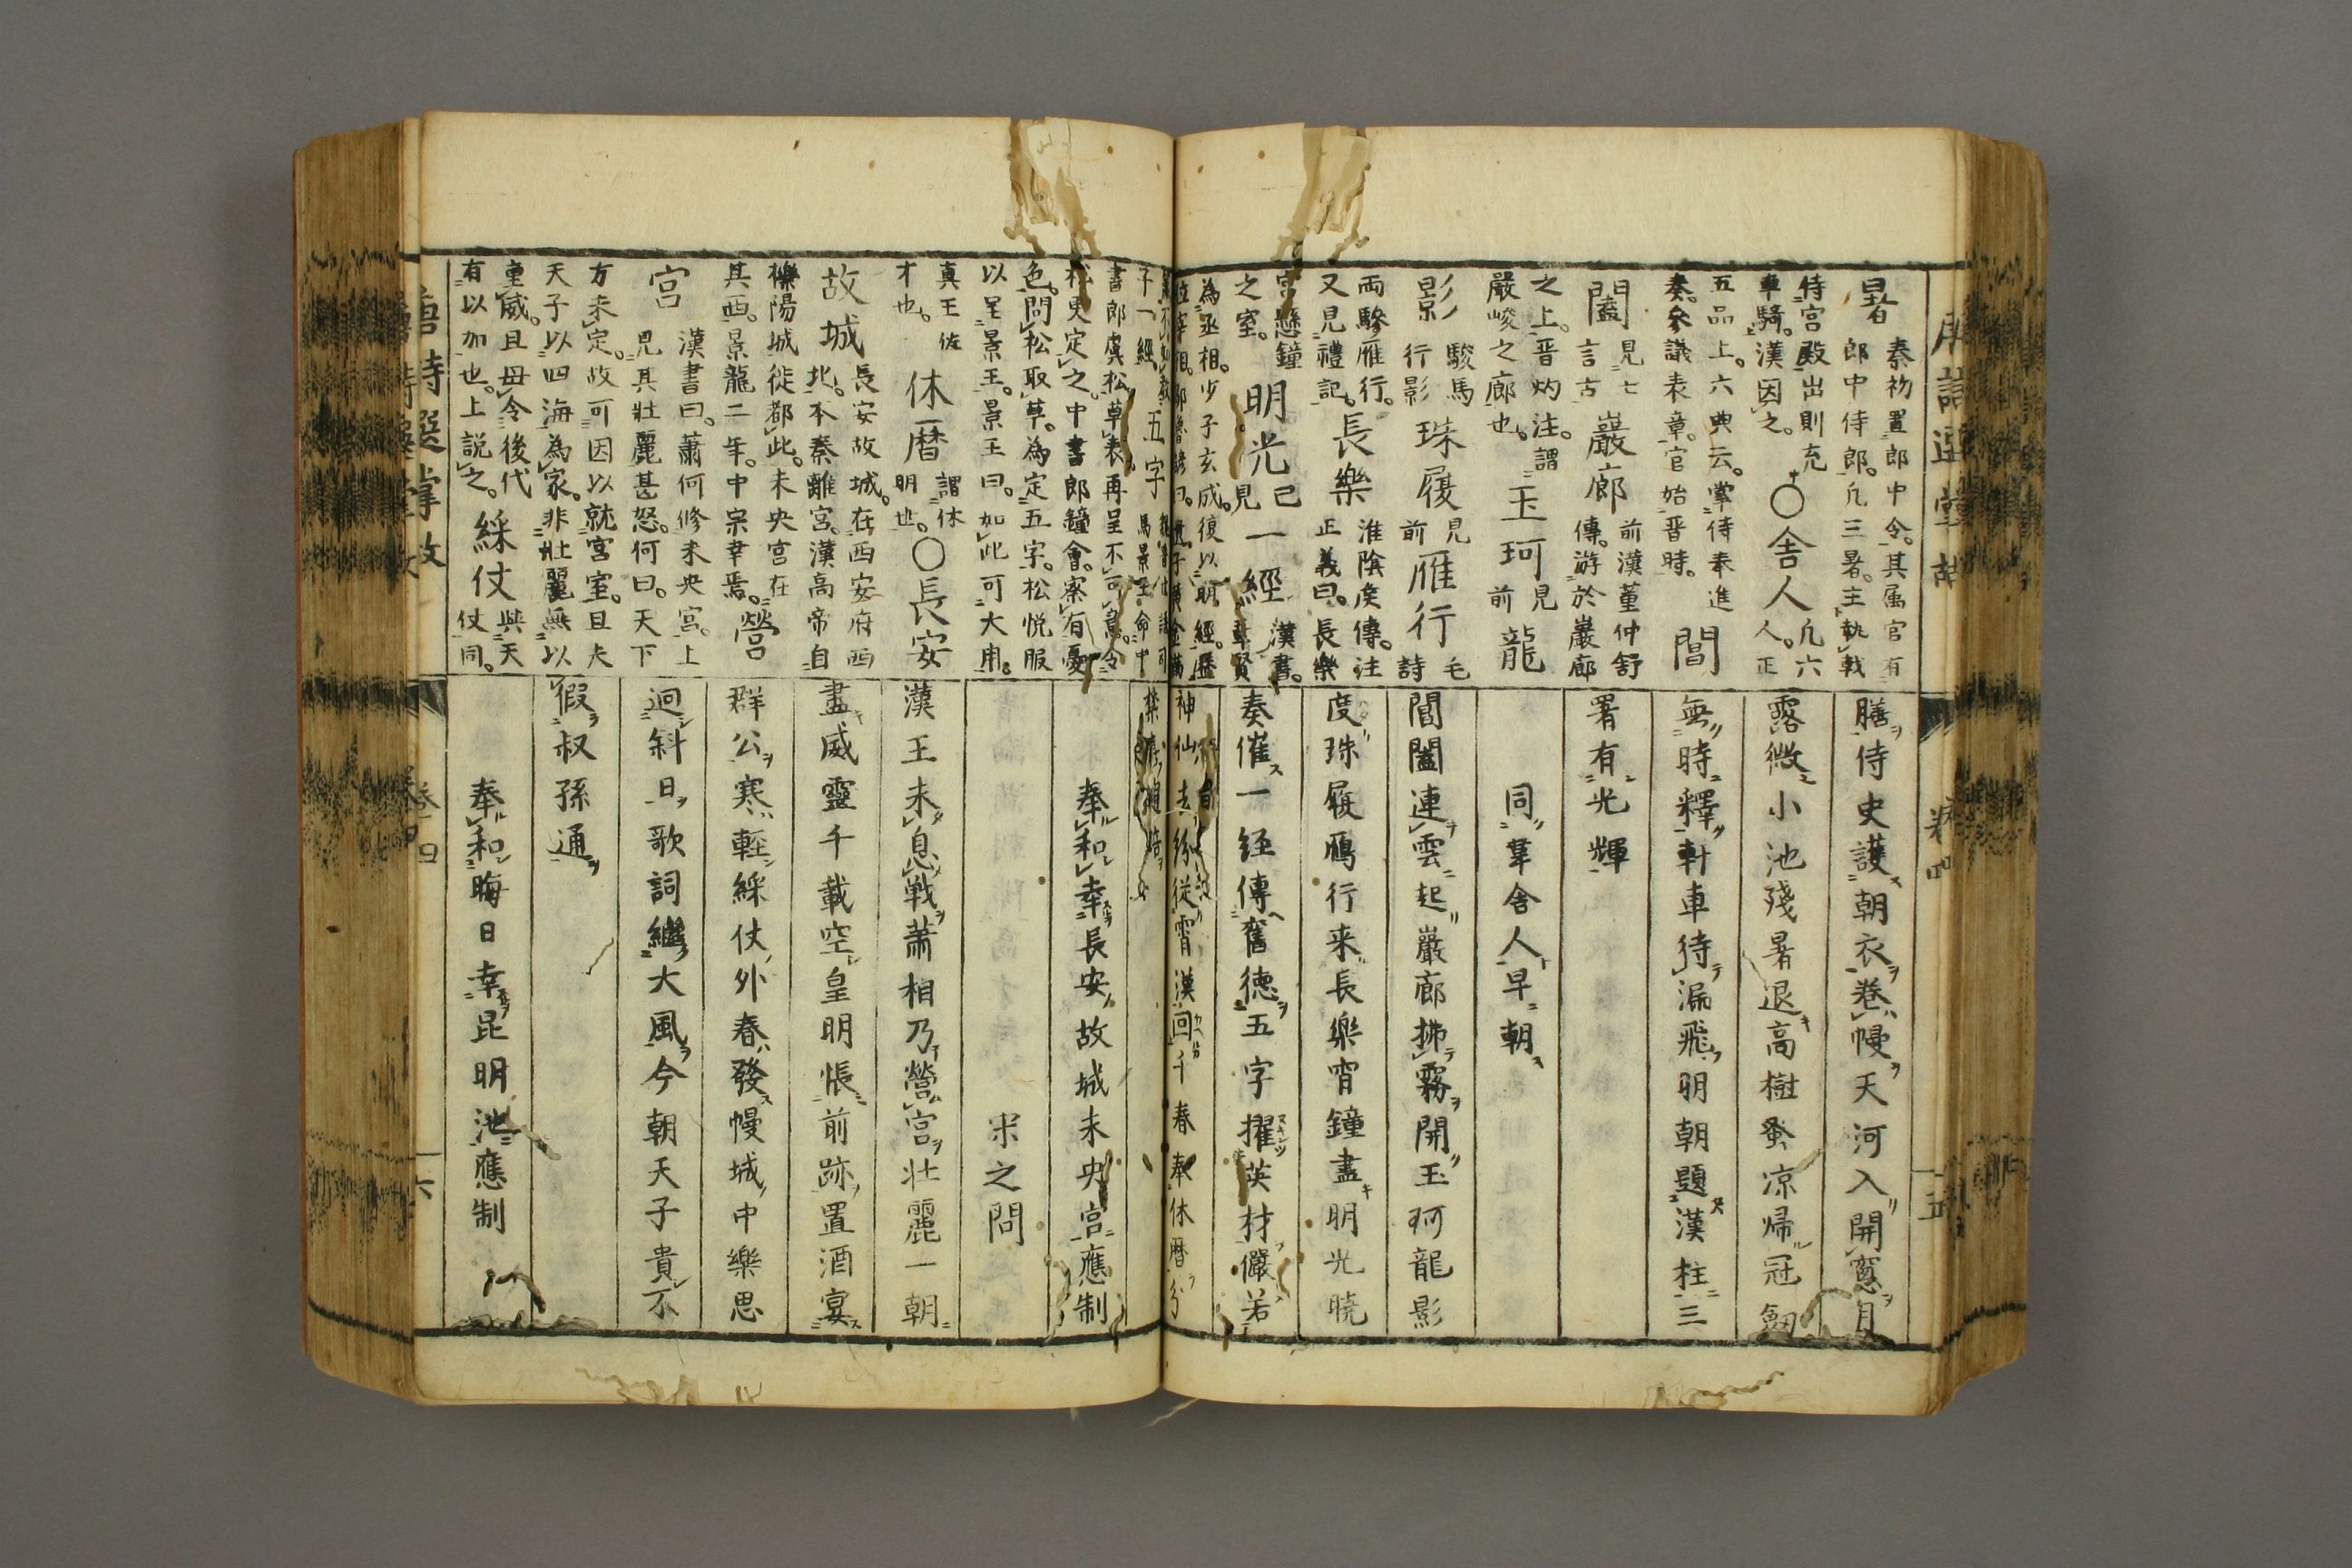 唐詩選掌故
卷四
十五
暑
秦初置郎中令。其属官有
郎中侍郎。凢三暑。主執戟
侍宮殿出則充
車騎。漢因之。
○舎人
凢六
人。正
五品上。六典云。掌侍奉進
奏。參議表章。官始晋時。
閶
闔
見七
言古
巖廊
前漢董仲舒
傳。游於巖廊
之上。晋灼注。謂
嚴峻之廊也。
玉珂
見
前
龍
影
駿馬
行影
珠履
見
前
雁行
毛
詩
両驂雁行。
又見禮記。
長樂
淮陰侯傳。注
正義曰。長樂
宮懸鐘
之室。
明光
已
見
一經
漢書。
韋賢
為丞相。少子玄成。復以明經。歴
位宰相。鄒魯諺曰。
膳侍史護朝衣卷幔天河入開窓月
露微小池殘暑退高樹蚤凉帰冠劔
無時釋軒車待漏飛明朝題漢柱三
署有光輝
同韋舎人早朝
閶闔連雲起巖廊拂霧開玉珂龍影
度珠履鴈行来長樂宵鐘盡明光暁
奏催一経傳舊徳五字擢英材儼若
神仙去紛従霄漢回千春奉休暦分
子一經。
五字
馬景王命中
書郎虞松草表再呈不可意。令
松更定之。中書郎鐘會。察有憂
色。問松取草。為定五字。松悦服
以呈景王。景王曰。如此可大用。
真王佐
才也。
休暦
謂休
明也。
○長安
故城
長安故城。在西安府西
北。本秦離宮。漢高帝自
櫟陽城徙都此。未央宮在
其西。景龍二年。中宗幸焉。
營
宮
漢書曰。蕭何修未央宮。上
見其壮麗甚怒。何曰。天下
方未定。故可因以就宮室。且夫
天子以四海為家。非壮麗無以
重威。且毋令後代
有以加也。上説之。
綵仗
與天
仗同。
禁喜趨陪
奉和幸長安故城未央宮應制
宋之問
漢王未息戦蕭相乃營宮壮麗一朝
盡威靈千載空皇明悵前跡置酒宴
群公寒輕綵仗外春發幔城中樂思
迴斜日歌詞繼大風今朝天子貴不
假叔孫通
奉和晦日幸昆明池應制
唐詩選掌故
卷四
十六